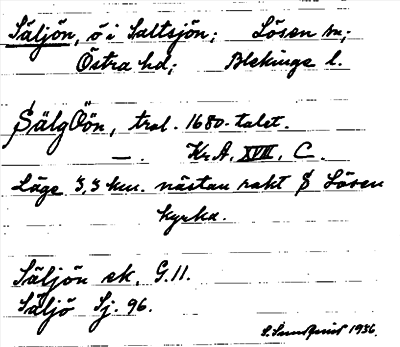 Säljön, ö i Saltsjön; Lösen sn;
Östra hd; Blekinge l.
SälgÖön, trol. 1680-talet.
—. Kr.A. XVIII, C.
Läge 3,3 km. nästan rakt S Lösen
kyrka.
Säljön ek. G.11.
Säljö Sj. 96.
S. Sundquist 1936.